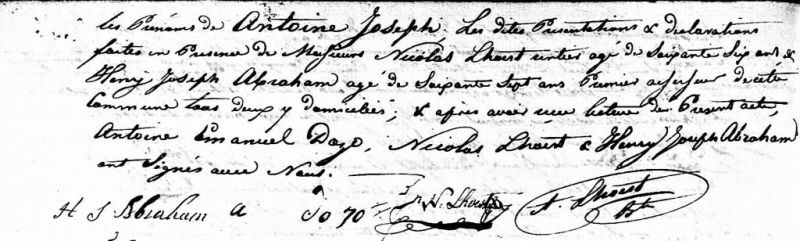 les Prénoms de Antoine Joseph, Les dites Presentations & declarations
faites en Presence de Messieurs Nicolas Lhoest rentier agé de Soixante Six ans &
Henry Joseph Abraham agé de Soixante Sept ans Premier assesseur de cette
Commune tous deux y domiciliés; & après avoir eu lecture de Present acte,
Antoine Emanuel Dazo, Nicolas Lhoest & Henry Joseph Abraham
ont Signés avec Nous.
H J Abraham a N. Lhoest A. Lhoest